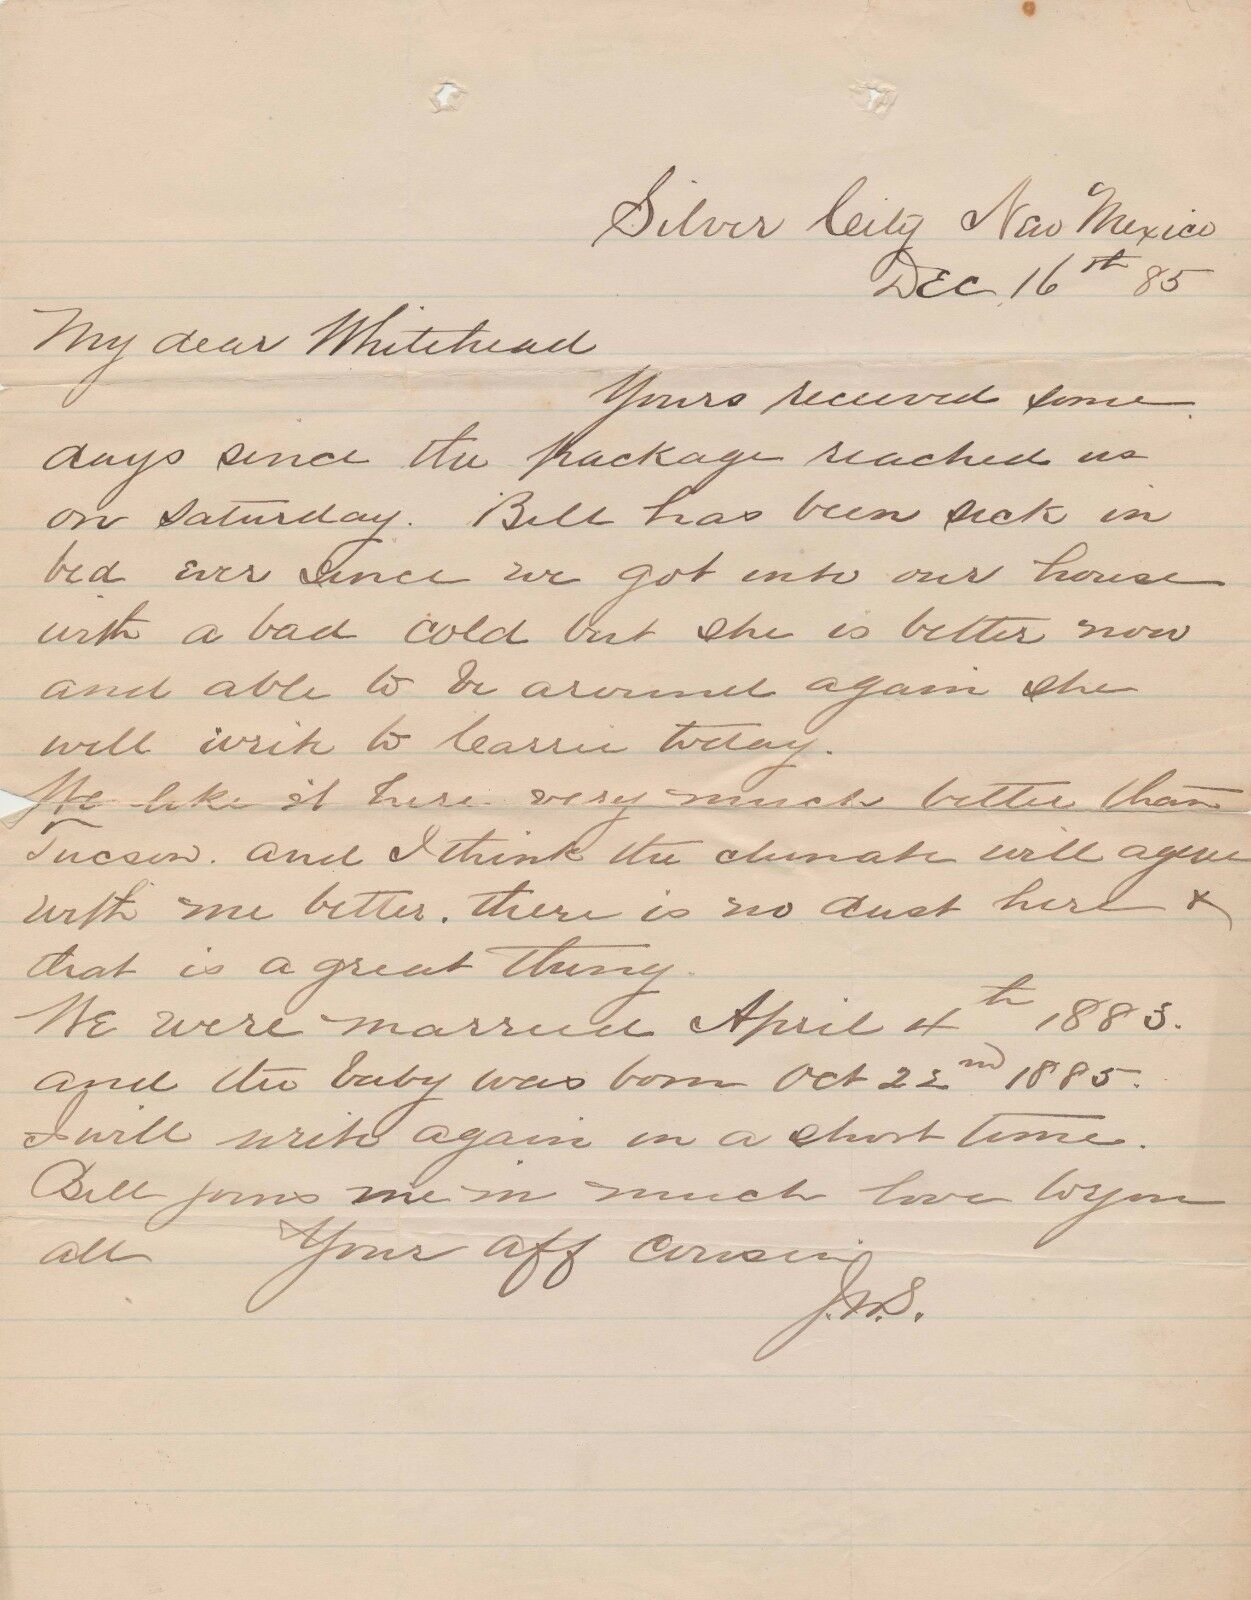 Silver City New Mexico
Dec 16th 85
My dear Whitehead
Yours received some
days since the package reached us
on saturday. Bell has been sick in
bed ever since we got into our house
with a bad cold but she is better now
and able to be around again she
will write to Carrie today.
We like it here very much better than
Tucson. and I think the climate will agree
with me better. there is no dust here &
that is a great thing.
We were married April 4th 1883.
and the baby was born Oct 22nd 1885.
I will write again in a short time.
Bell joins me in much love to you
all Your aff cousin
J.W.S.